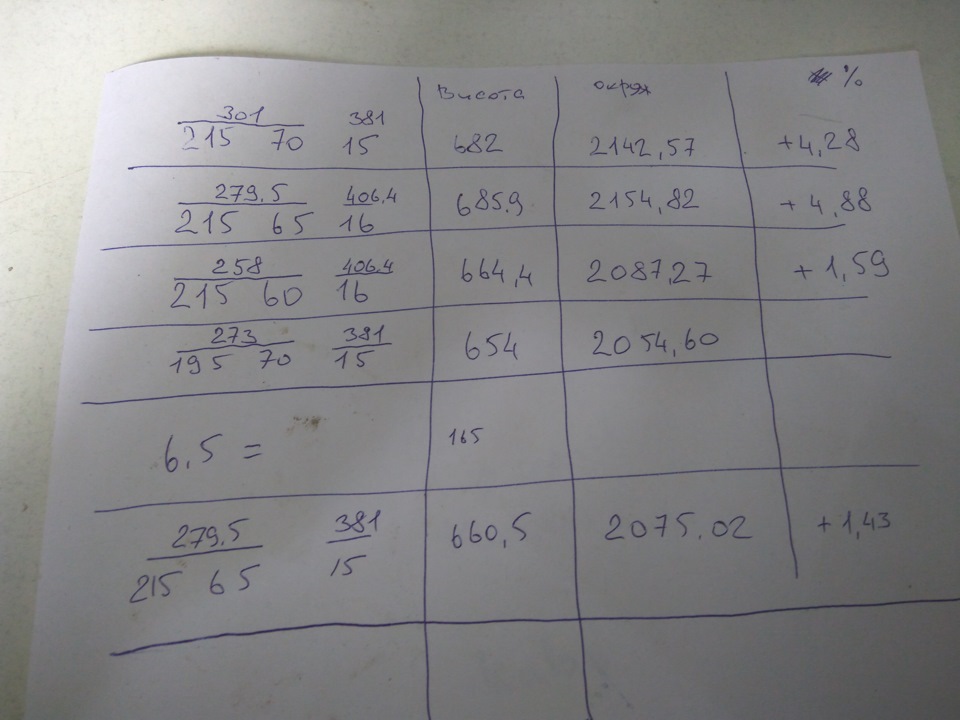 Висота окруж %
301 381
215 70 15 682 2142,57 +4,28
279.5 406.4
215 65 16 685.9 2154,82 +4,88
258 406.4
215 60 16 664,4 2087,27 +1,59
273 381
195 70 15 654 2054,60
6.5 = 165
279.5 381
215 65 15 660,5 2075.02 +1,43